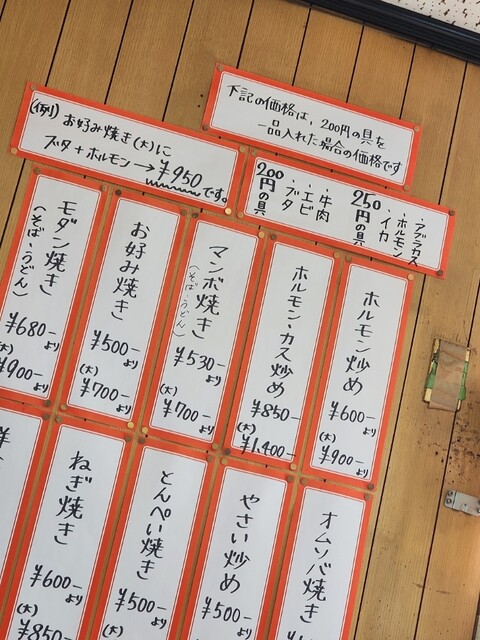 下記の価格は、200円の具を
一品入れた場合の価格です
(例) お好み焼き(大)に
ブタ+ホルモン→¥950です。
250円の具
・アブラカス
・ホルモン
・イカ
200円の具
・牛肉
・エビ
・ブタ
ホルモン炒め
¥600-より
(大)
¥900-より
ホルモン・カス炒め
¥850-より
(大)
¥1,400-
マンボ焼き
(そば・うどん)
¥530-より
(大)
¥700-より
お好み焼き
¥500-より
(大)
¥700-より
モダン焼き
(そば・うどん)
¥680-より
(大)
¥900-より
オムソバ焼き
やさい炒め
¥500-より
とんぺい焼き
¥500-より
(大)
ねぎ焼き
¥600-より
(大)
¥850-